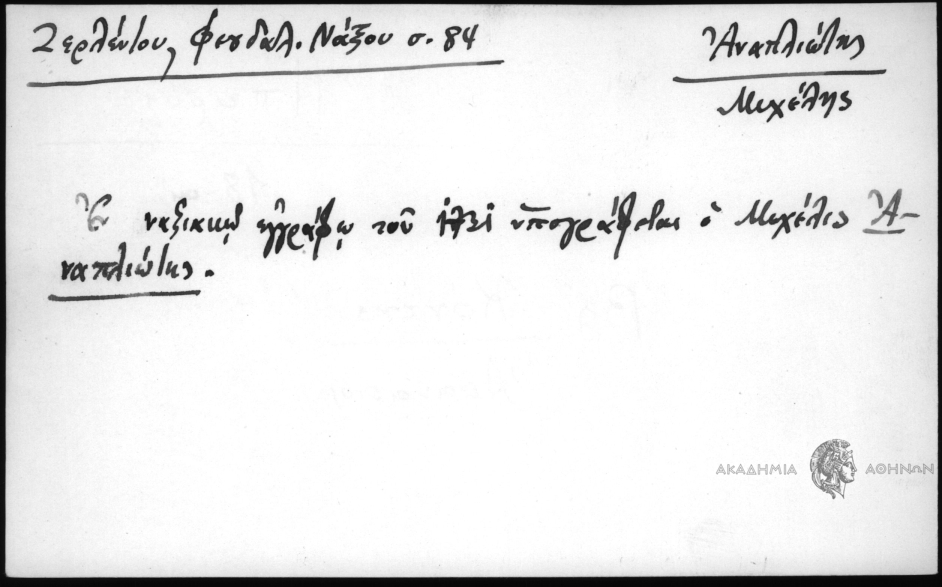 Ζερλέντου, Φευδαλ. Νάξου σ. 84
Ἀναπλιώτης
Μιχέλης
Ἐν ναξιακῷ ἐγγράφῳ τοῦ ὑπογράφεται ὁ Μιχέλις Ἀ-
ναπλιώτης.
ΑΚΑΔΗΜΙΑ ΑΘΗΝΩΝ